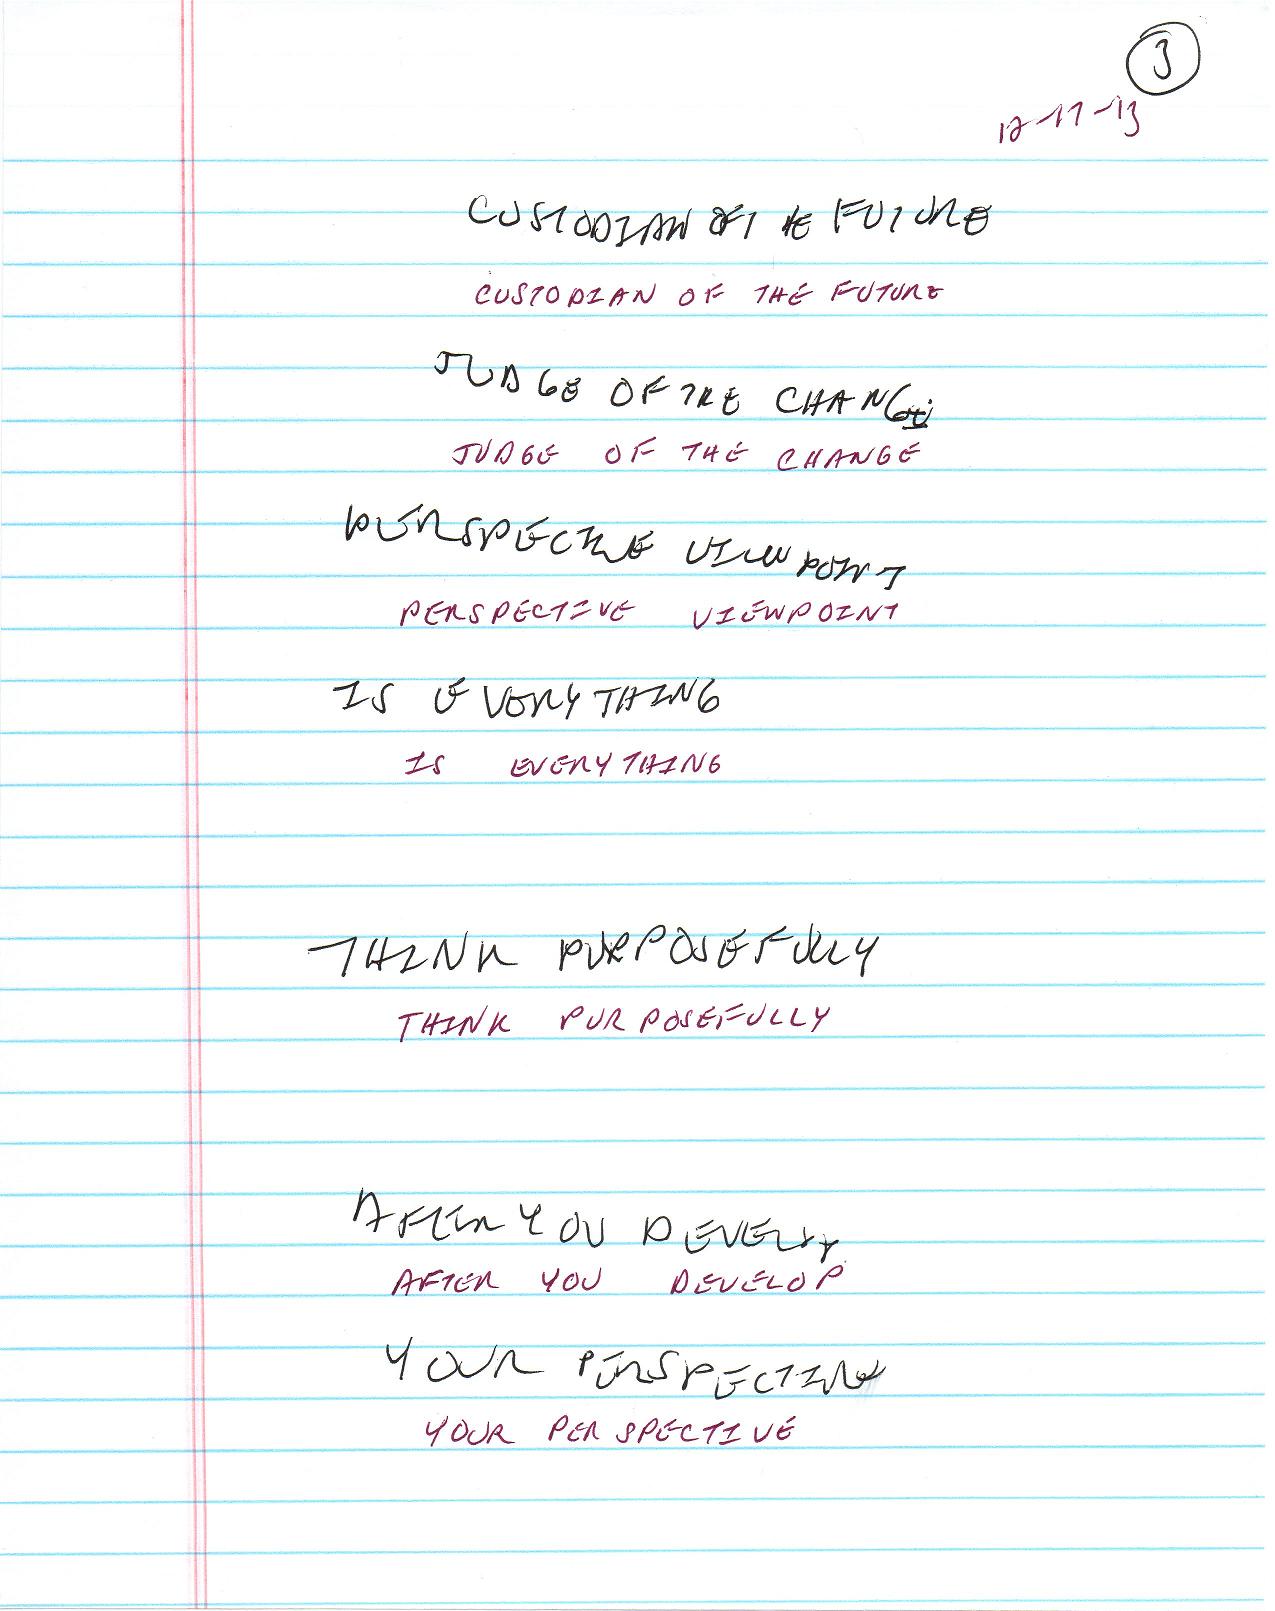 3
12-17-13
CUSTODIAN OF THE FUTURE
CUSTODIAN OF THE FUTURE
JUDGE OF THE CHANGE
JUDGE OF THE CHANGE
PERSPECTIVE VIEWPOINT
PERSPECTIVE VIEWPOINT
IS EVERYTHING
IS EVERYTHING
THINK PURPOSEFULLY
THINK PURPOSEFULLY
AFTER YOU DEVELOP
AFTER YOU DEVELOP
YOUR PERSPECTIVE
YOUR PERSPECTIVE